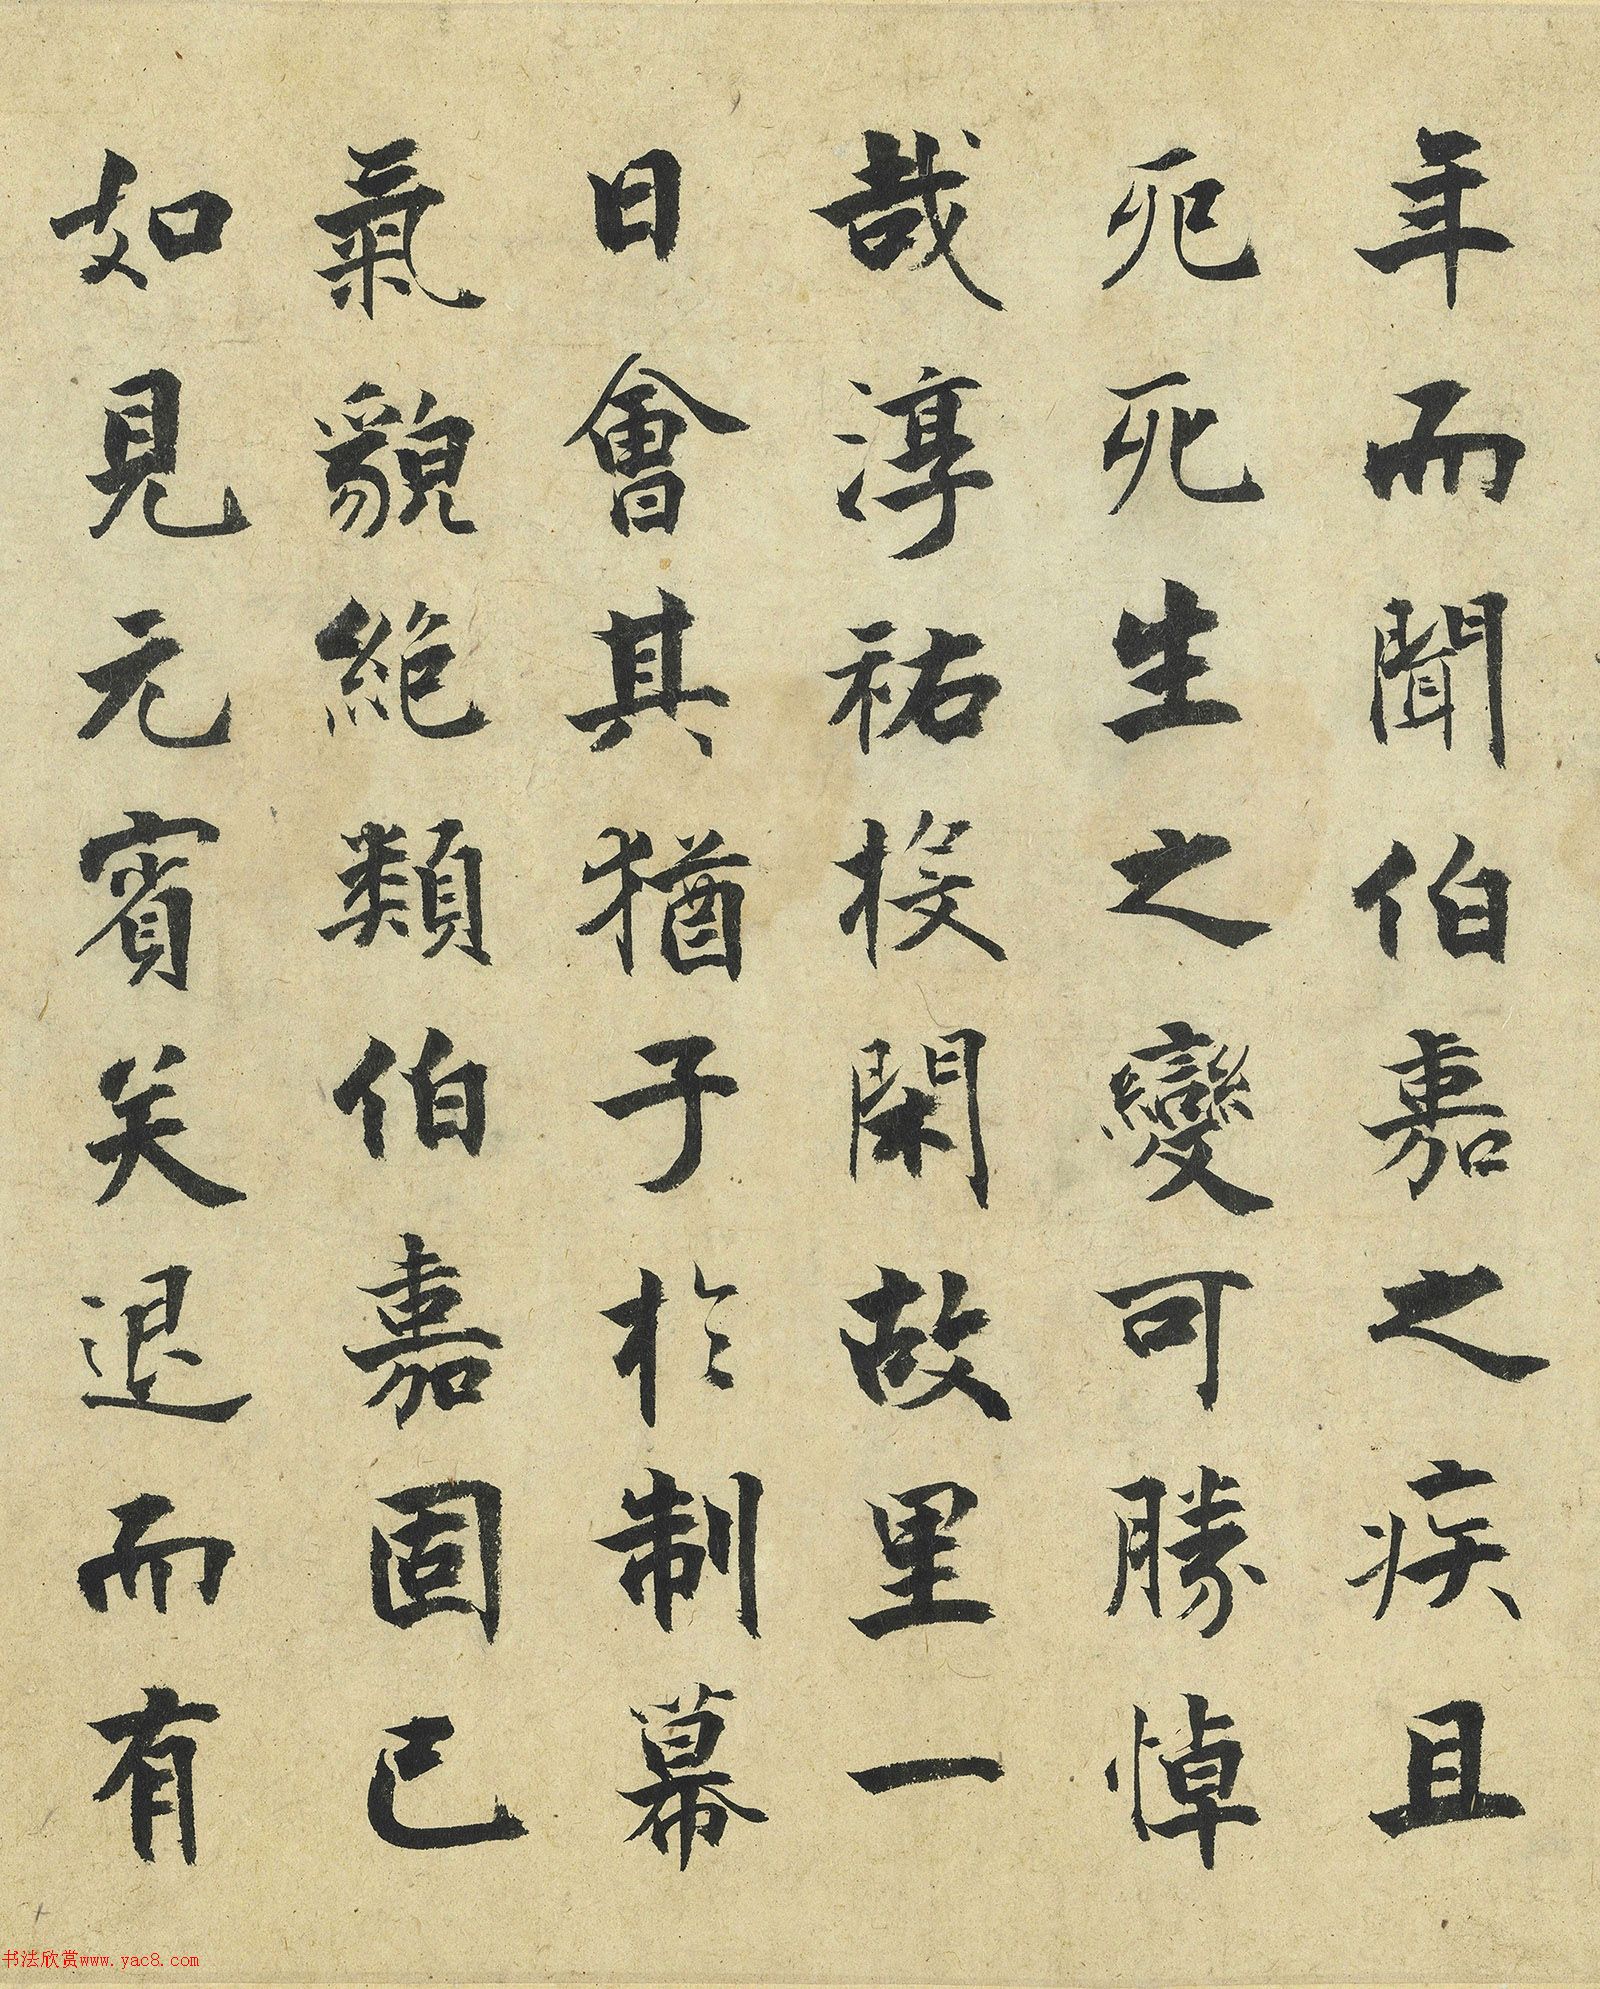 年而聞伯嘉之疾且
死死生之變可勝悼
哉淳祐投閑故里一
日會其猶子於制幕
氣貌絕類伯嘉固已
如見元賓矣退而有
书法欣赏www.yac8.com